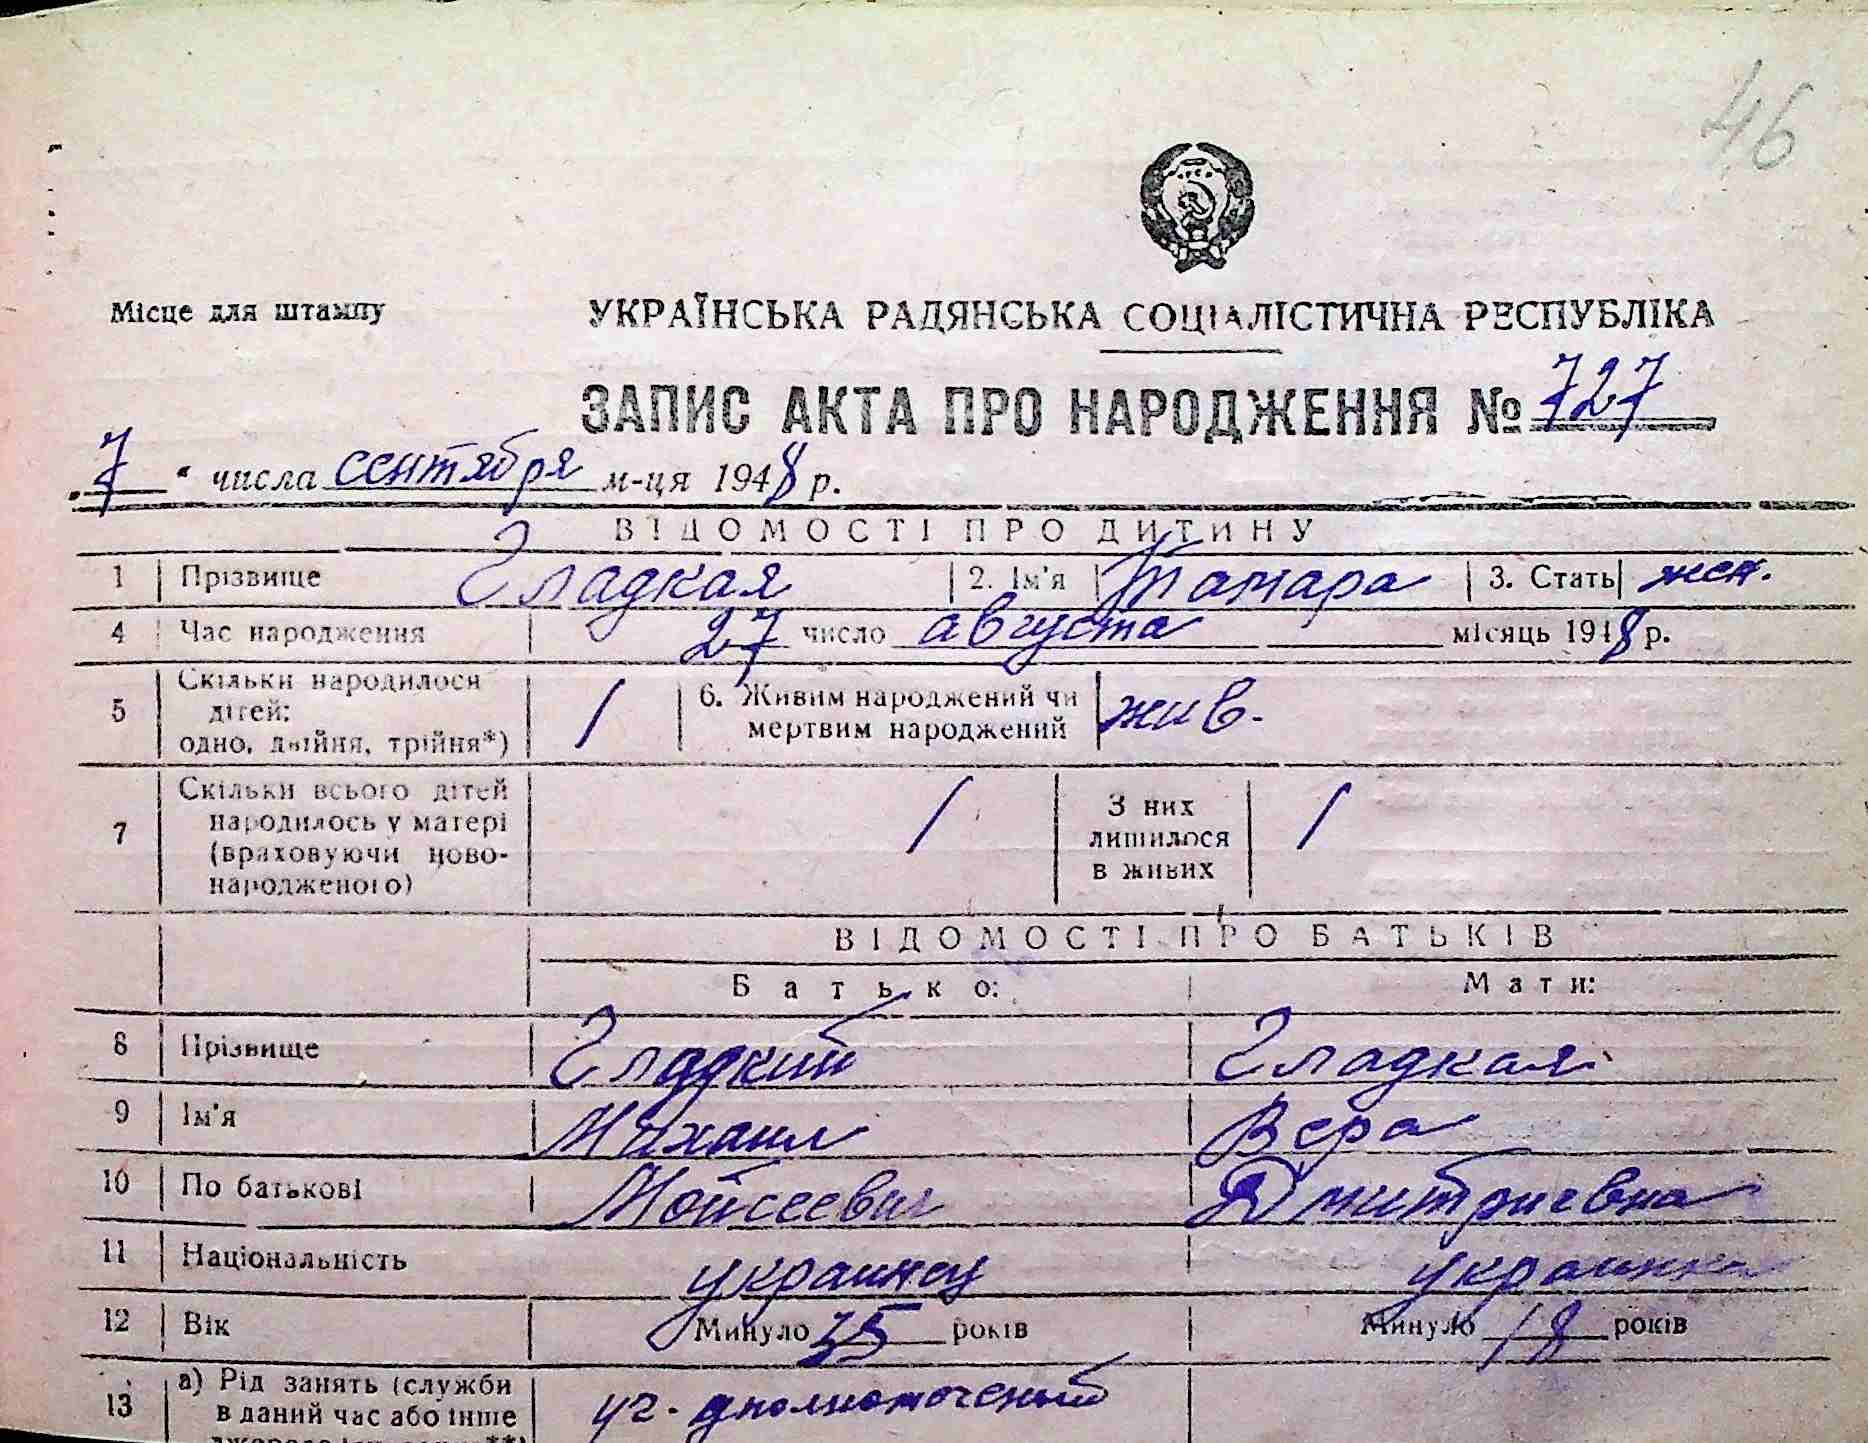 46
Місце для штампу
УКРАЇНСЬКА РАДЯНСЬКА СОЦІАЛІСТИЧНА РЕСПУБЛІКА
ЗАПИС АКТА ПРО НАРОДЖЕННЯ № 727
„7“ числа сентября м-ця 1948 р.
ВІДОМОСТІ ПРО ДИТИНУ
1 Прізвище Гладкая 2. Ім'я Тамара 3. Стать жен.
4 Час народження 27 число августа місяць 1948 р.
5 Скільки народилося дітей: одно, двійня, трійня*) 1 6. Живим народжений чи мертвим народжений жив.
7 Скільки всього дітей народилось у матері (враховуючи новонародженого) 1 З них лишилося в живих 1
ВІДОМОСТІ ПРО БАТЬКІВ
Батько: Мати:
8 Прізвище Гладкий Гладкая
9 Ім'я Михаил Вера
10 По батькові Мойсеевич Дмитриевна
11 Національність украинец украинка
12 Вік Минуло 35 років Минуло 18 років
13 а) Рід занять (служби в даний час або інше уч. уполномоченый